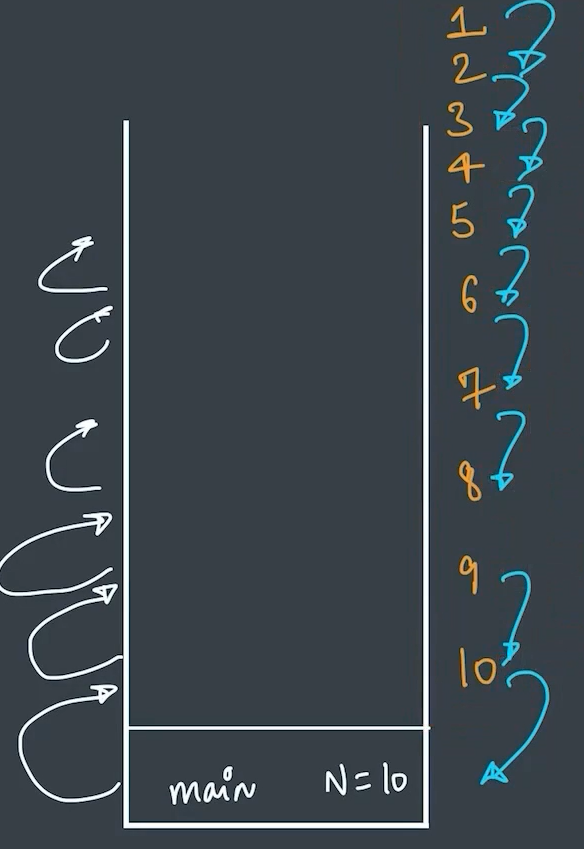 1
2
3
4
5
6
7
8
9
10
main N=10